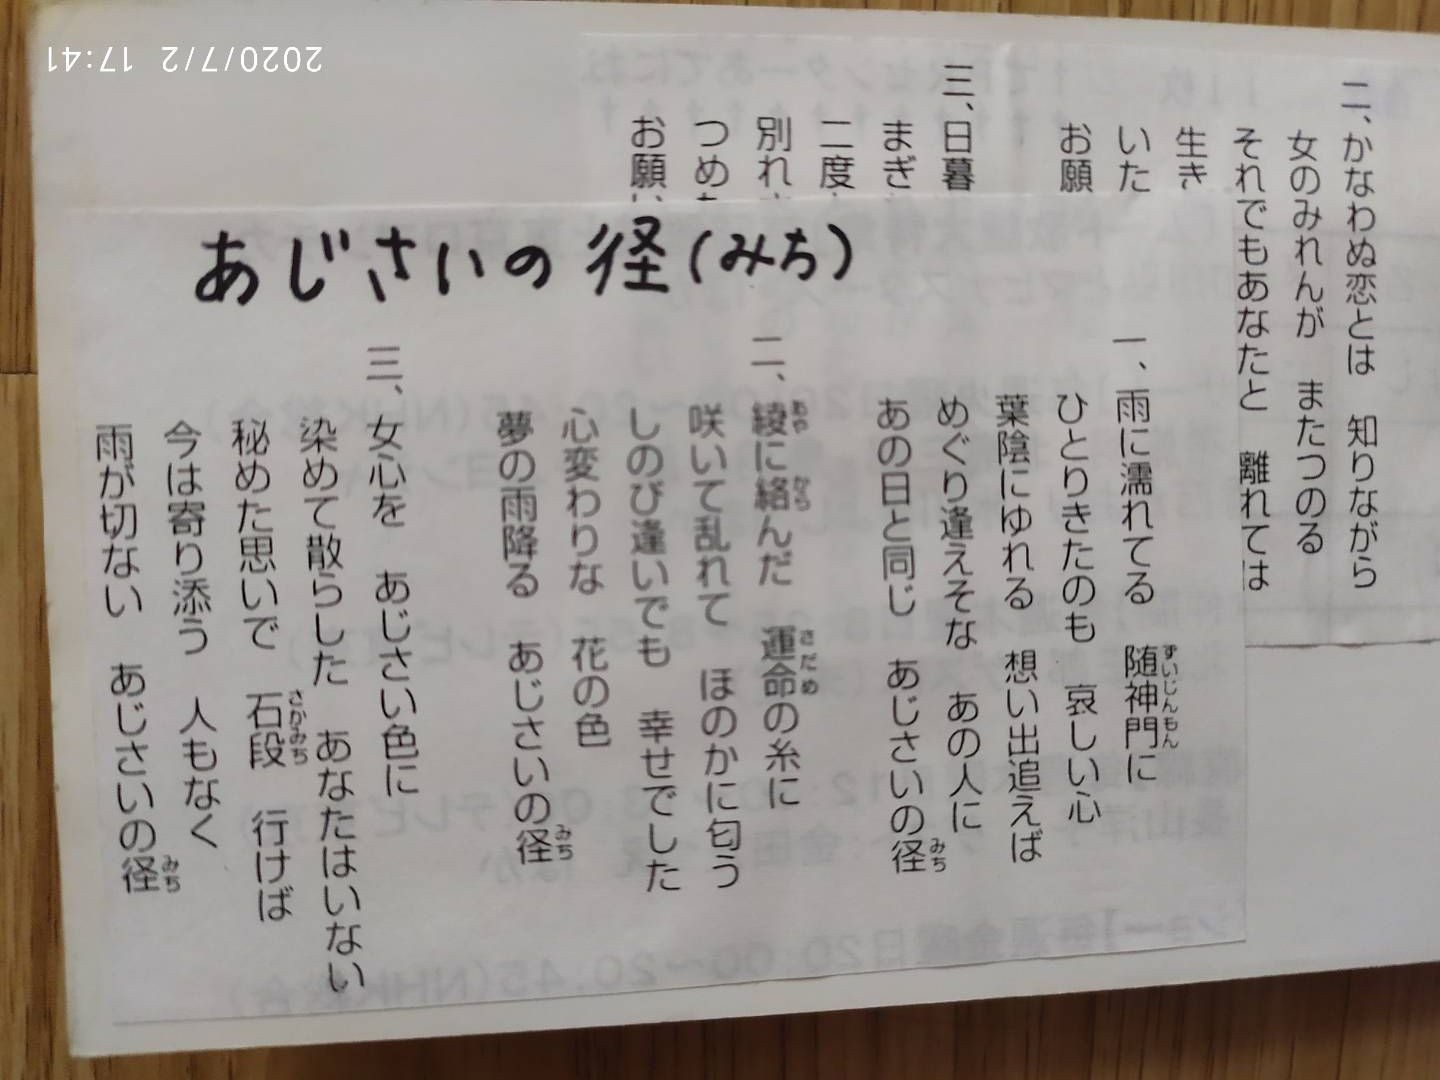 2020/7/2 17:41
二、かなわぬ恋とは 知りながら
女のみれんが またつのる
それでもあなたと 離れては
生き
いた
お願
三、日暮
まぎ
二度
別れ
つめた
お願い
あじさいの径(みち)
一、雨に濡れてる 随神門に
ずいじんもん
ひとりきたのも 哀しい心
葉陰にゆれる 想い出追えば
めぐり逢えそな あの人に
あの日と同じ あじさいの径
みち
二、綾に絡んだ 運命の糸に
あや から さだめ
咲いて乱れて ほのかに匂う
しのび逢いでも 幸せでした
心変わりな 花の色
夢の雨降る あじさいの径
みち
三、女心を あじさい色に
染めて散らした あなたはいない
秘めた思いで 石段 行けば
さかみち
今は寄り添う 人もなく
雨が切ない あじさいの径
みち